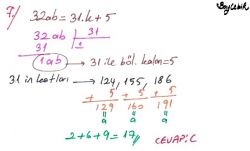 Beyzebek
7) 32ab = 31.k + 5
32ab | 31
31 | 1
1ab → 31 ile böl. kalan = 5
31 in katları → 124, 155, 186
+ 5 + 5 + 5
129 160 191
a a a
2+6+9 = 17 // CEVAP: C